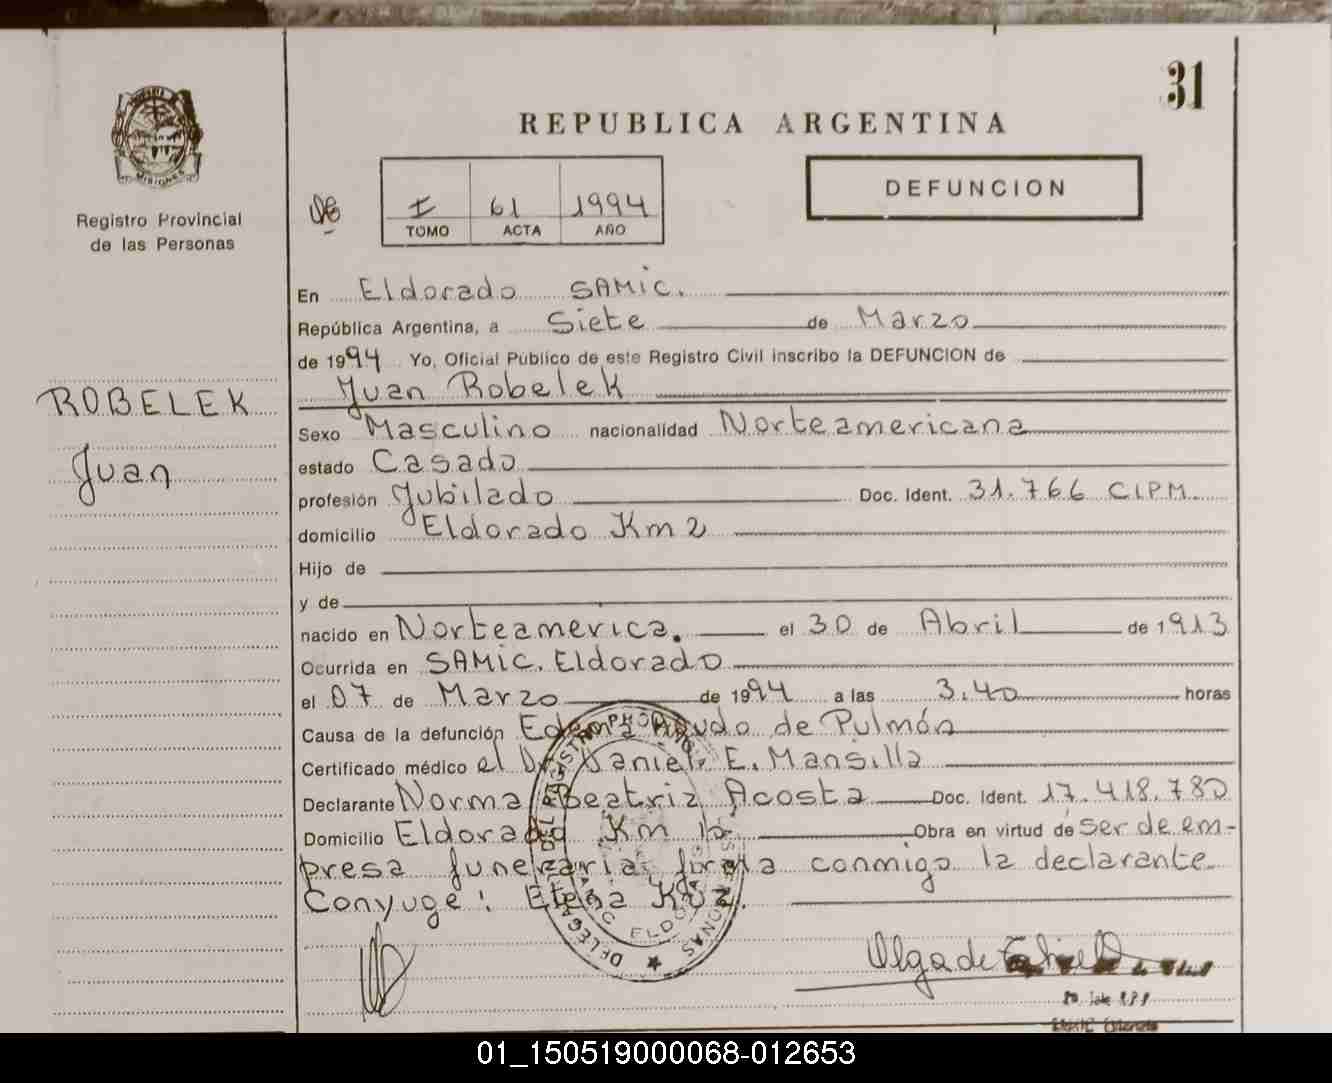 31
REPUBLICA ARGENTINA
MISIONES
Registro Provincial
de las Personas
DEFUNCION
I 61 1994
TOMO ACTA AÑO
En Eldorado SAMIC.
República Argentina, a Siete de Marzo
de 1994 Yo, Oficial Público de este Registro Civil inscribo la DEFUNCION de
ROBELEK
Juan
Juan Robelek
Sexo Masculino nacionalidad Norteamericana
estado Casado
profesión Jubilado Doc. Ident. 31.766 CIPM
domicilio Eldorado Km 2
Hijo de
y de
nacido en Norteamerica. el 30 de Abril de 1913
Ocurrida en SAMIC. Eldorado
el 07 de Marzo de 1994 a las 3.40 horas
Causa de la defunción Edema Agudo de Pulmón
Certificado médico el Dr. Daniel E. Mansilla
Declarante Norma Beatriz Acosta Doc. Ident. 17.418.780
Domicilio Eldorado Km Obra en virtud de ser de em-
presa funeraria firma conmigo la declarante
Conyuge: Elena
DELEGACION DEL REGISTRO PROV. DE LAS PERSONAS
SAMIC ELDORADO
Olga de
01_150519000068-012653